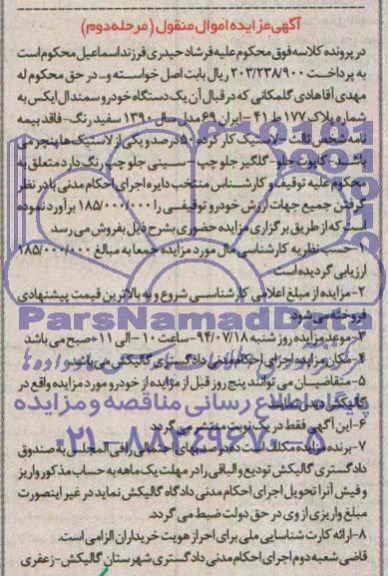 آگهی مزایده اموال منقول (مرحله دوم)
در پرونده کلاسه فوق محکوم علیه فرشاد حیدری فرزند اسماعیل محکوم است
به پرداخت ۲۰۳/۲۳۸/۹۰۰ ریال بابت اصل خواسته و... در حق محکوم له
مهدی آقاهادی گلمکانی که در قبال آن یک دستگاه خودرو سمند ال ایکس به
شماره پلاک ۱۷۷ ط ۴۱ - ایران ۶۹ مدل سال ۱۳۹۰ سفید رنگ - فاقد بیمه
نامه شخص ثالث - لاستیک کار کرده ۵۰ درصد و یکی از لاستیک ها پنچر می
باشد - کاپوت جلو - گلگیر جلو چپ - سینی جلو چپ رنگ دارد متعلق به
محکوم علیه توقیف و کارشناس منتخب دایره اجرای احکام مدنی با در نظر
گرفتن جمیع جهات ارزش خودرو توقیفی را ۱۸۵/۰۰۰/۰۰۰ برآورد نموده
است که از طریق برگزاری مزایده حضوری بشرح ذیل بفروش می رسد
۱- حسب نظریه کارشناسی مال مورد مزایده جمعا به مبالغ ۱۸۵/۰۰۰/۰۰۰
ارزیابی گردیده است
۲- مزایده از مبلغ اعلامی کارشناسی شروع و به بالاترین قیمت پیشنهادی
فروخته می شود
۳- موعد مزایده روز شنبه ۹۴/۰۷/۱۸ - ساعت ۱۰ - الی ۱۱ صبح می باشد
۴- مکان مزایده اجرای احکام مدنی دادگستری گالیکش می باشد
۵- متقاضیان می توانند پنج روز قبل از مزایده از خودرو مورد مزایده واقع در
گالیکش دیدن نمایند
۶- این آگهی فقط در یک نوبت منتشر می گردد
۷- برنده مزایده مکلف است ده درصد بهای احتمالی را فی المجلس به صندوق
دادگستری گالیکش تودیع و الباقی را در مهلت یک ماهه به حساب مذکور واریز
و فیش آنرا تحویل اجرای احکام مدنی دادگاه گالیکش نماید در غیر اینصورت
مبلغ واریزی از وی در حق دولت ضبط می گردد.
۸- ارائه کارت شناسایی ملی برای احراز هویت خریداران الزامی است.
قاضی شعبه دوم اجرای احکام مدنی دادگستری شهرستان گالیکش - زعفری
ParsNamadData
پایگاه اطلاع رسانی مناقصه و مزایده
۰۲۱-۸۸۳۴۹۶۷۰-۵